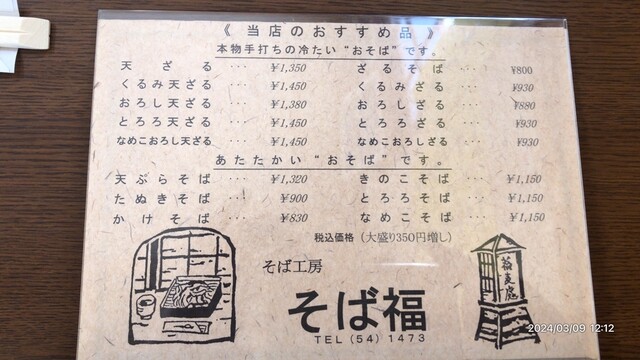 《 当店のおすすめ品 》
本物手打ちの冷たい“おそば”です。
天ざる ··· ¥1,350 ざるそば ··· ¥800
くるみ天ざる ··· ¥1,450 くるみざる ··· ¥930
おろし天ざる ··· ¥1,380 おろしざる ··· ¥880
とろろ天ざる ··· ¥1,450 とろろざる ··· ¥930
なめこおろし天ざる ··· ¥1,450 なめこおろしざる ··· ¥930
あたたかい“おそば”です。
天ぷらそば ··· ¥1,320 きのこそば ··· ¥1,150
たぬきそば ··· ¥900 とろろそば ··· ¥1,150
かけそば ··· ¥830 なめこそば ··· ¥1,150
税込価格（大盛り350円増し）
そば工房
そば福
TEL (54) 1473
蕎麦処
2024/03/09 12:12